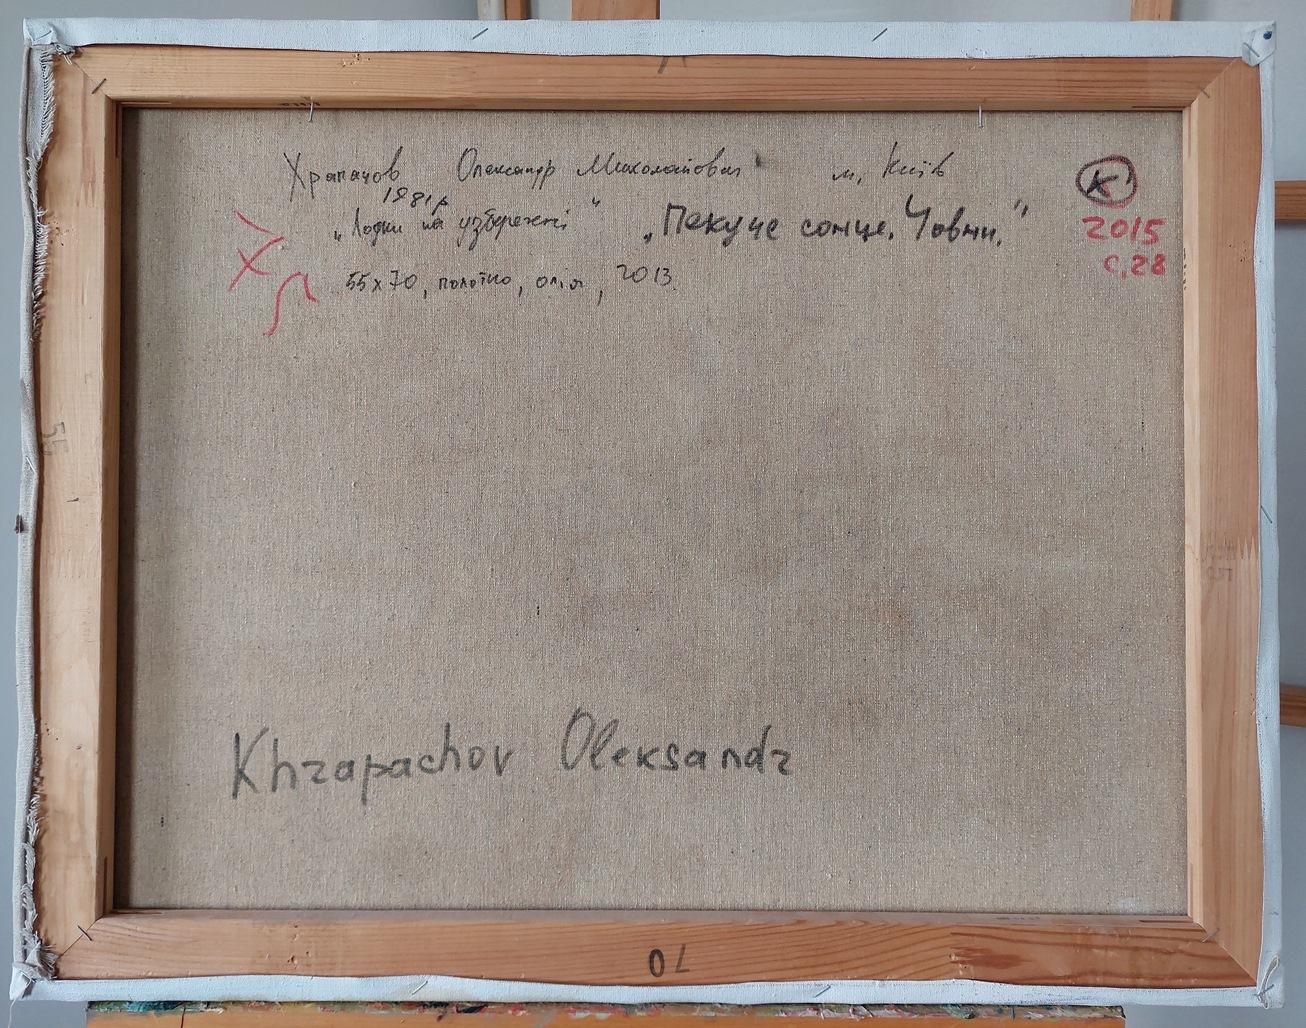 Храпачов Олександр Миколайович м. Київ
1981р
„Лодки на узбережжі" „Пекуче сонце. Човни."
К
2015
с. 28
55х70, полотно, олія, 2013.
Khrapachov Oleksandr
55
70